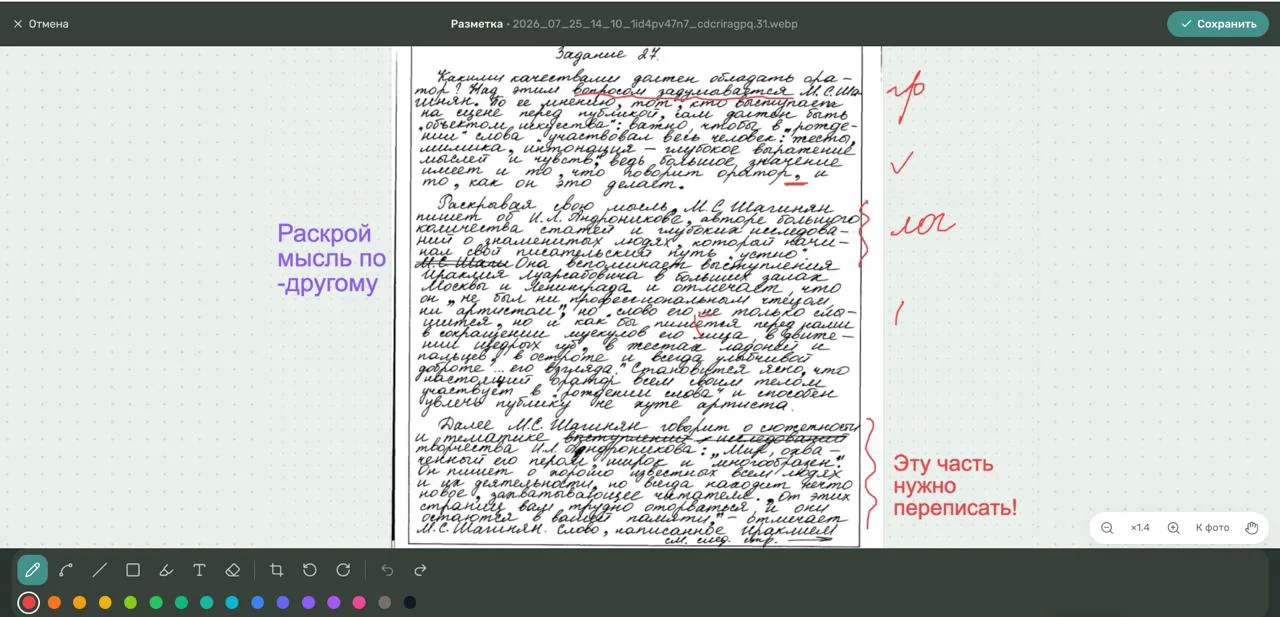 Отмена
Разметка • 2026_07_25_14_10_1id4pv47n7_cdcriragpq.31.webp
Сохранить
Задание 27.
Какими качествами должен обладать ора-
тор? Над этим вопросом задумывается М.С. Ша-
гинян. По её мнению, тот, кто выступает
на сцене перед публикой, сам должен быть
„объектом искусства": важно, чтобы в „рожде-
нии" слова участвовал весь человек: жесты,
мимика, интонация – глубокое выражение
мыслей и чувств, ведь большое значение
имеет и то, что говорит оратор, и
то, как он это делает.
Раскрывая свою мысль, М.С. Шагинян
пишет об И.Л. Андроникове, авторе большого
количества статей и глубоких исследова-
ний о знаменитых людях, который начи-
нал свой писательский путь „устно".
М.С. Шаги Она вспоминает выступления
Ираклия Луарсабовича в больших залах
Москвы и Ленинграда и отмечает, что
он „не был ни профессиональным чтецом,
ни артистом", но „слово его не только слы-
шится, но и как бы пишется перед нами
в сокращении мускулов его лица, в движе-
нии щедрых губ, в жестах ладоней и
пальцев, в остроте и всегда улыбчивой
доброте ... его взгляда." Становится ясно, что
настоящий оратор всем своим телом
участвует в „рождении слова" и способен
увлечь публику не хуже артиста.
Далее М.С. Шагинян говорит о сюжетности
и тематике выступлений и исследований
творчества И.Л. Андроникова: „Мир, охва-
ченный его пером, широк и многообразен."
Он пишет о хорошо известных всем людях
и их деятельности, но всегда находит нечто
новое, захватывающее читателя. „От этих
страниц вам трудно оторваться, и они
остаются в вашей памяти," – отмечает
М.С. Шагинян. Слово, написанное Ираклием
см. след. стр.
Раскрой
мысль по
-другому
гр
лог
Эту часть
нужно
переписать!
×1.4
К фото